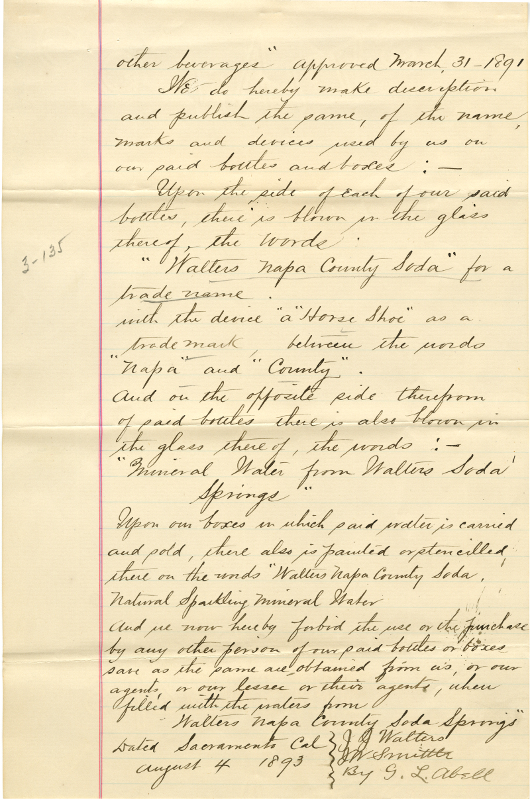 other beverages" approved March, 31-1891
We do hereby make description
and publish the same, of the name,
marks and devices used by us on
our said bottles and boxes : —
Upon the side of each of our said
bottles, there is blown in the glass
thereof, the words
"Walters Napa County Soda" for a
trade name.
with the device "a" Horse Shoe" as a
trade mark, between the words
"Napa" and "County".
And on the opposite side therefrom
of said bottles there is also blown in
the glass there of, the words : —
"Mineral Water from Walters Soda
Springs"
Upon our boxes in which said water is carried
and sold, there also is painted or stencilled,
there on the words "Walters Napa County Soda.
Natural Sparkling Mineral Water
And we now hereby forbid the use or the purchase
by any other person of our said bottles or boxes
save as the same are obtained from us, or our
agents, or our lessee or their agents, when
filled with the waters from
Walters Napa County Soda Springs"
Dated Sacramento Cal
August 4 1893
J J Walters
J W Smittle
By G. L. Abell
3-135